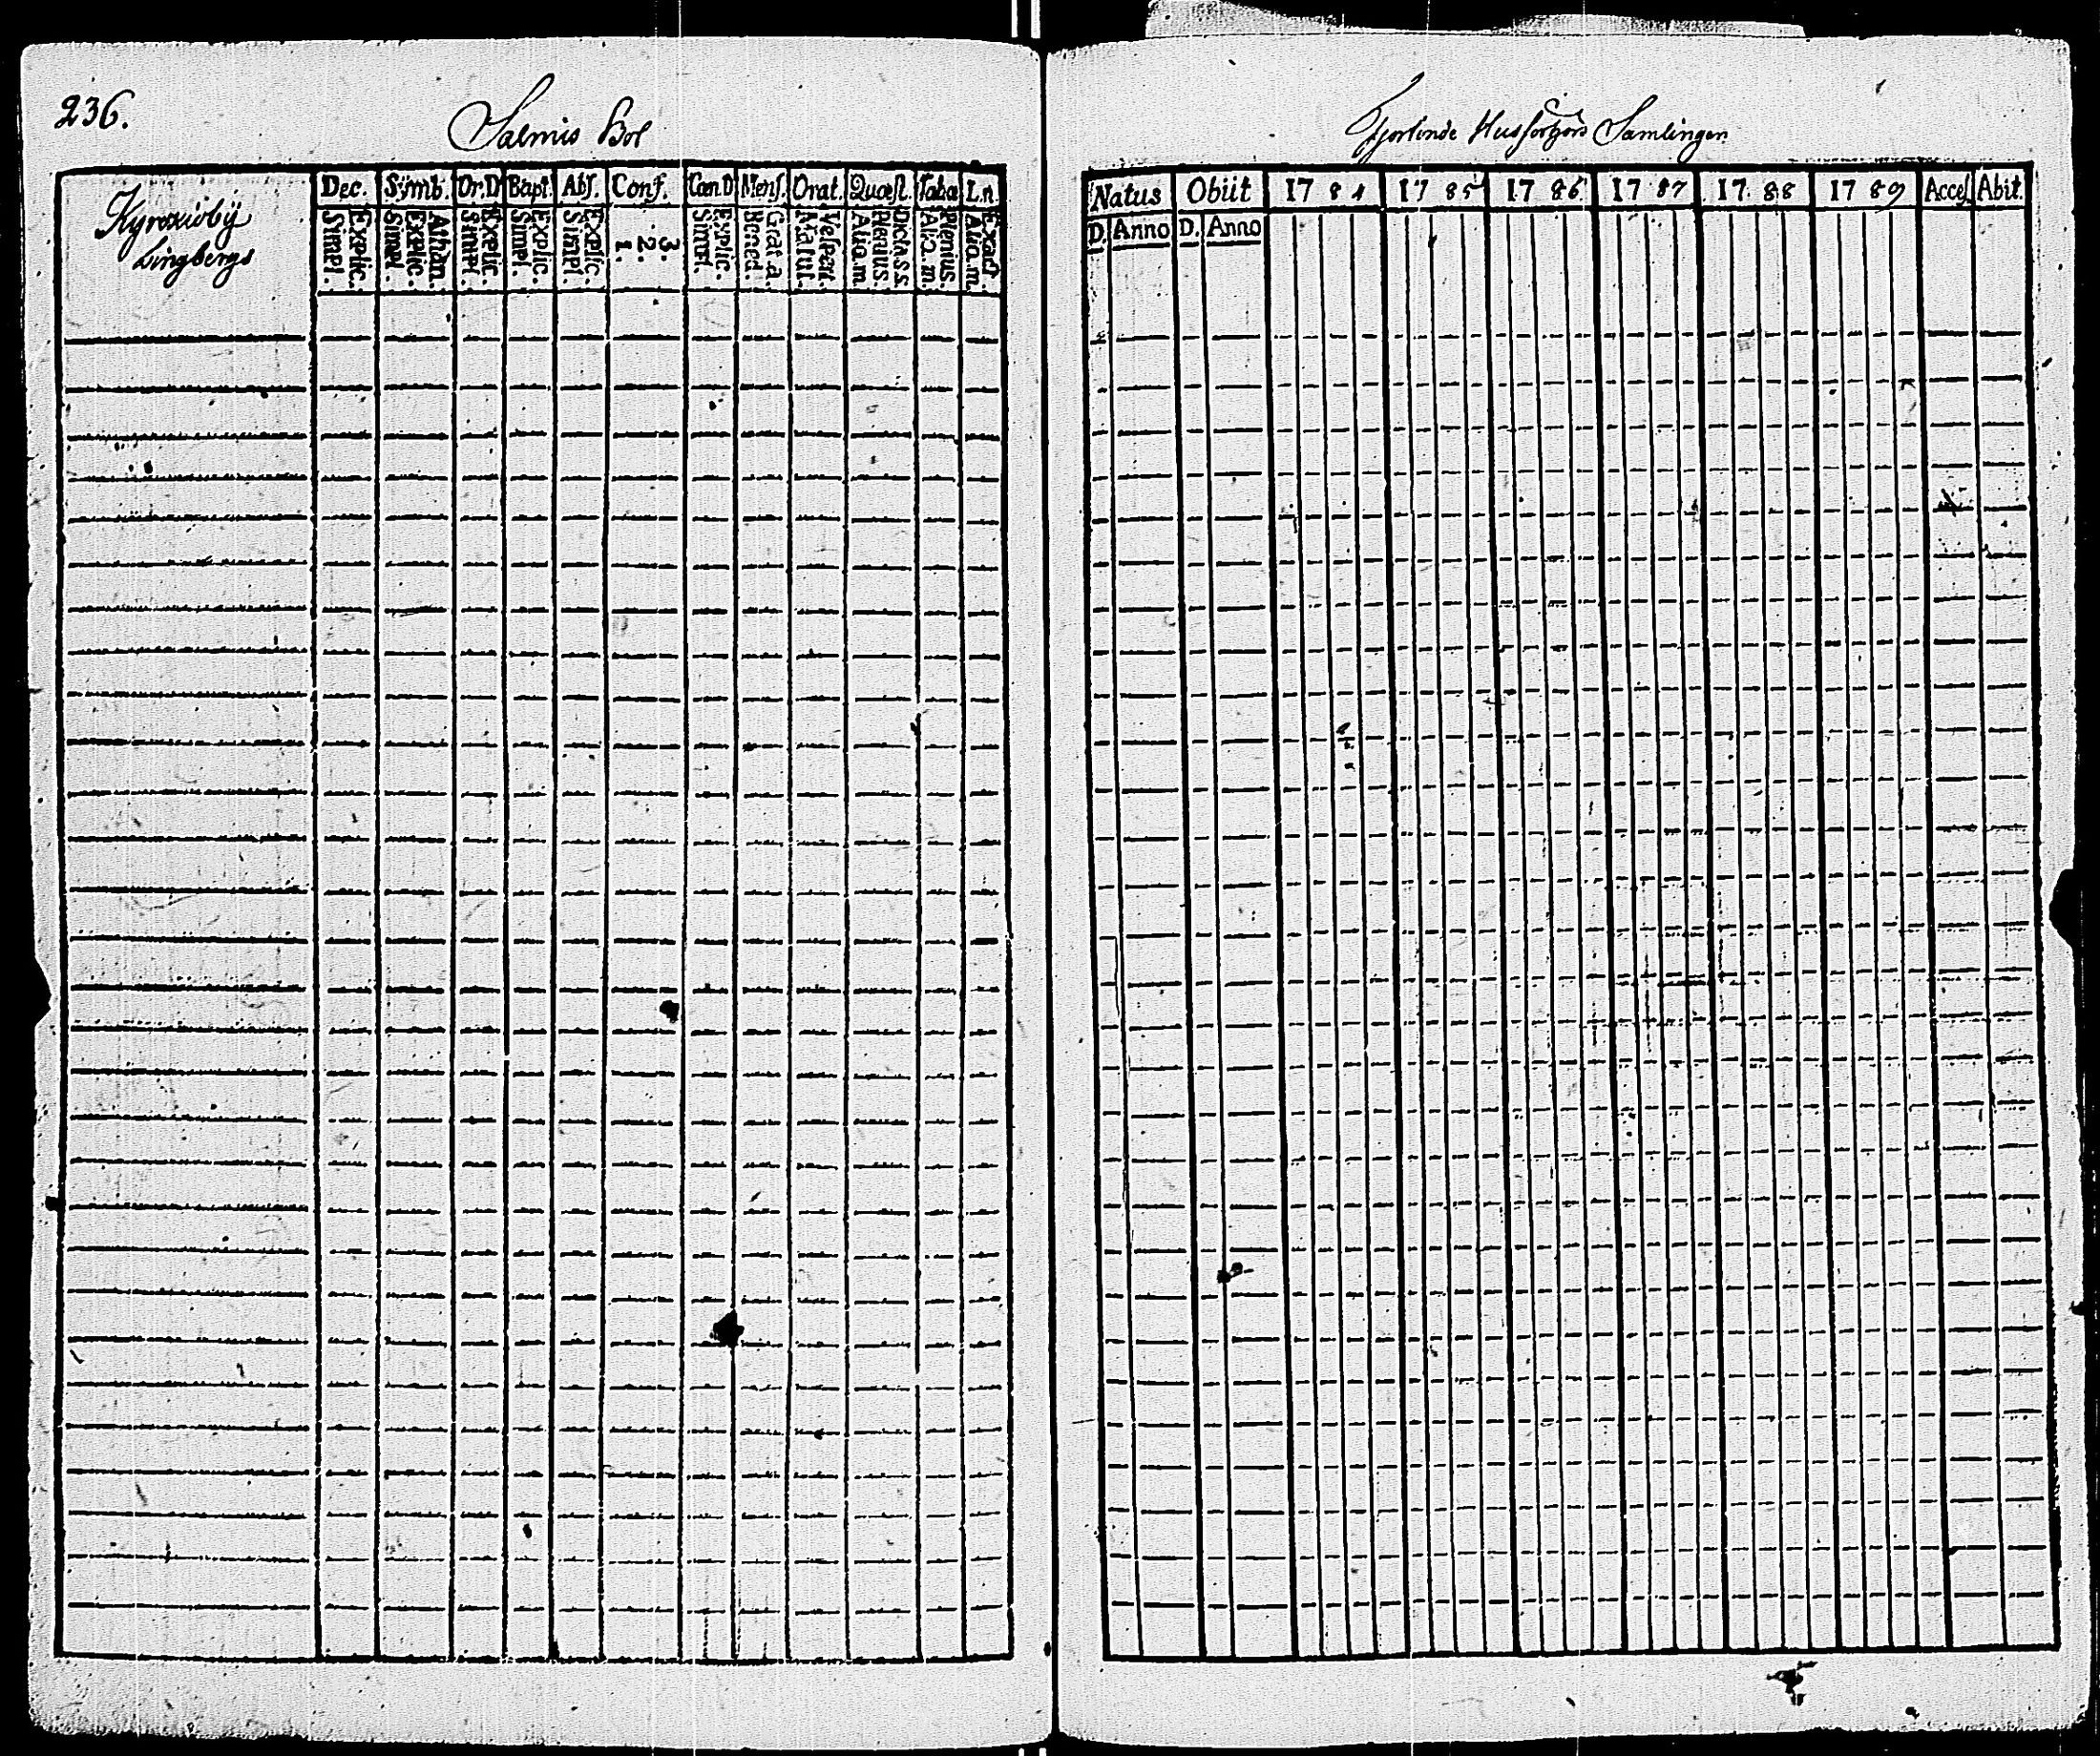 236.
Salmis Bol
Kyroskoby
Lingbergs
Dec. Symb. Or.D Bapt. Abs. Conf. Cœn.D Mens. Orat. Quæst. Taba L.n.
Explic. Simpl. Athan. Explic. Simpl. Explic. Simpl. Explic. Simpl. Explic. Simpl. 3. 2. 1. Explic. Simpl. Grat.a. Bened. Vespert. Matut. Dicta.s.s. Plenius. Aliq.m. Plenius. Aliq.m. Exact. Aliq.m.
Fjortonde Husförhörs Samlingen
Natus Obiit 1784 1785 1786 1787 1788 1789 Acces. Abit.
D. Anno D. Anno